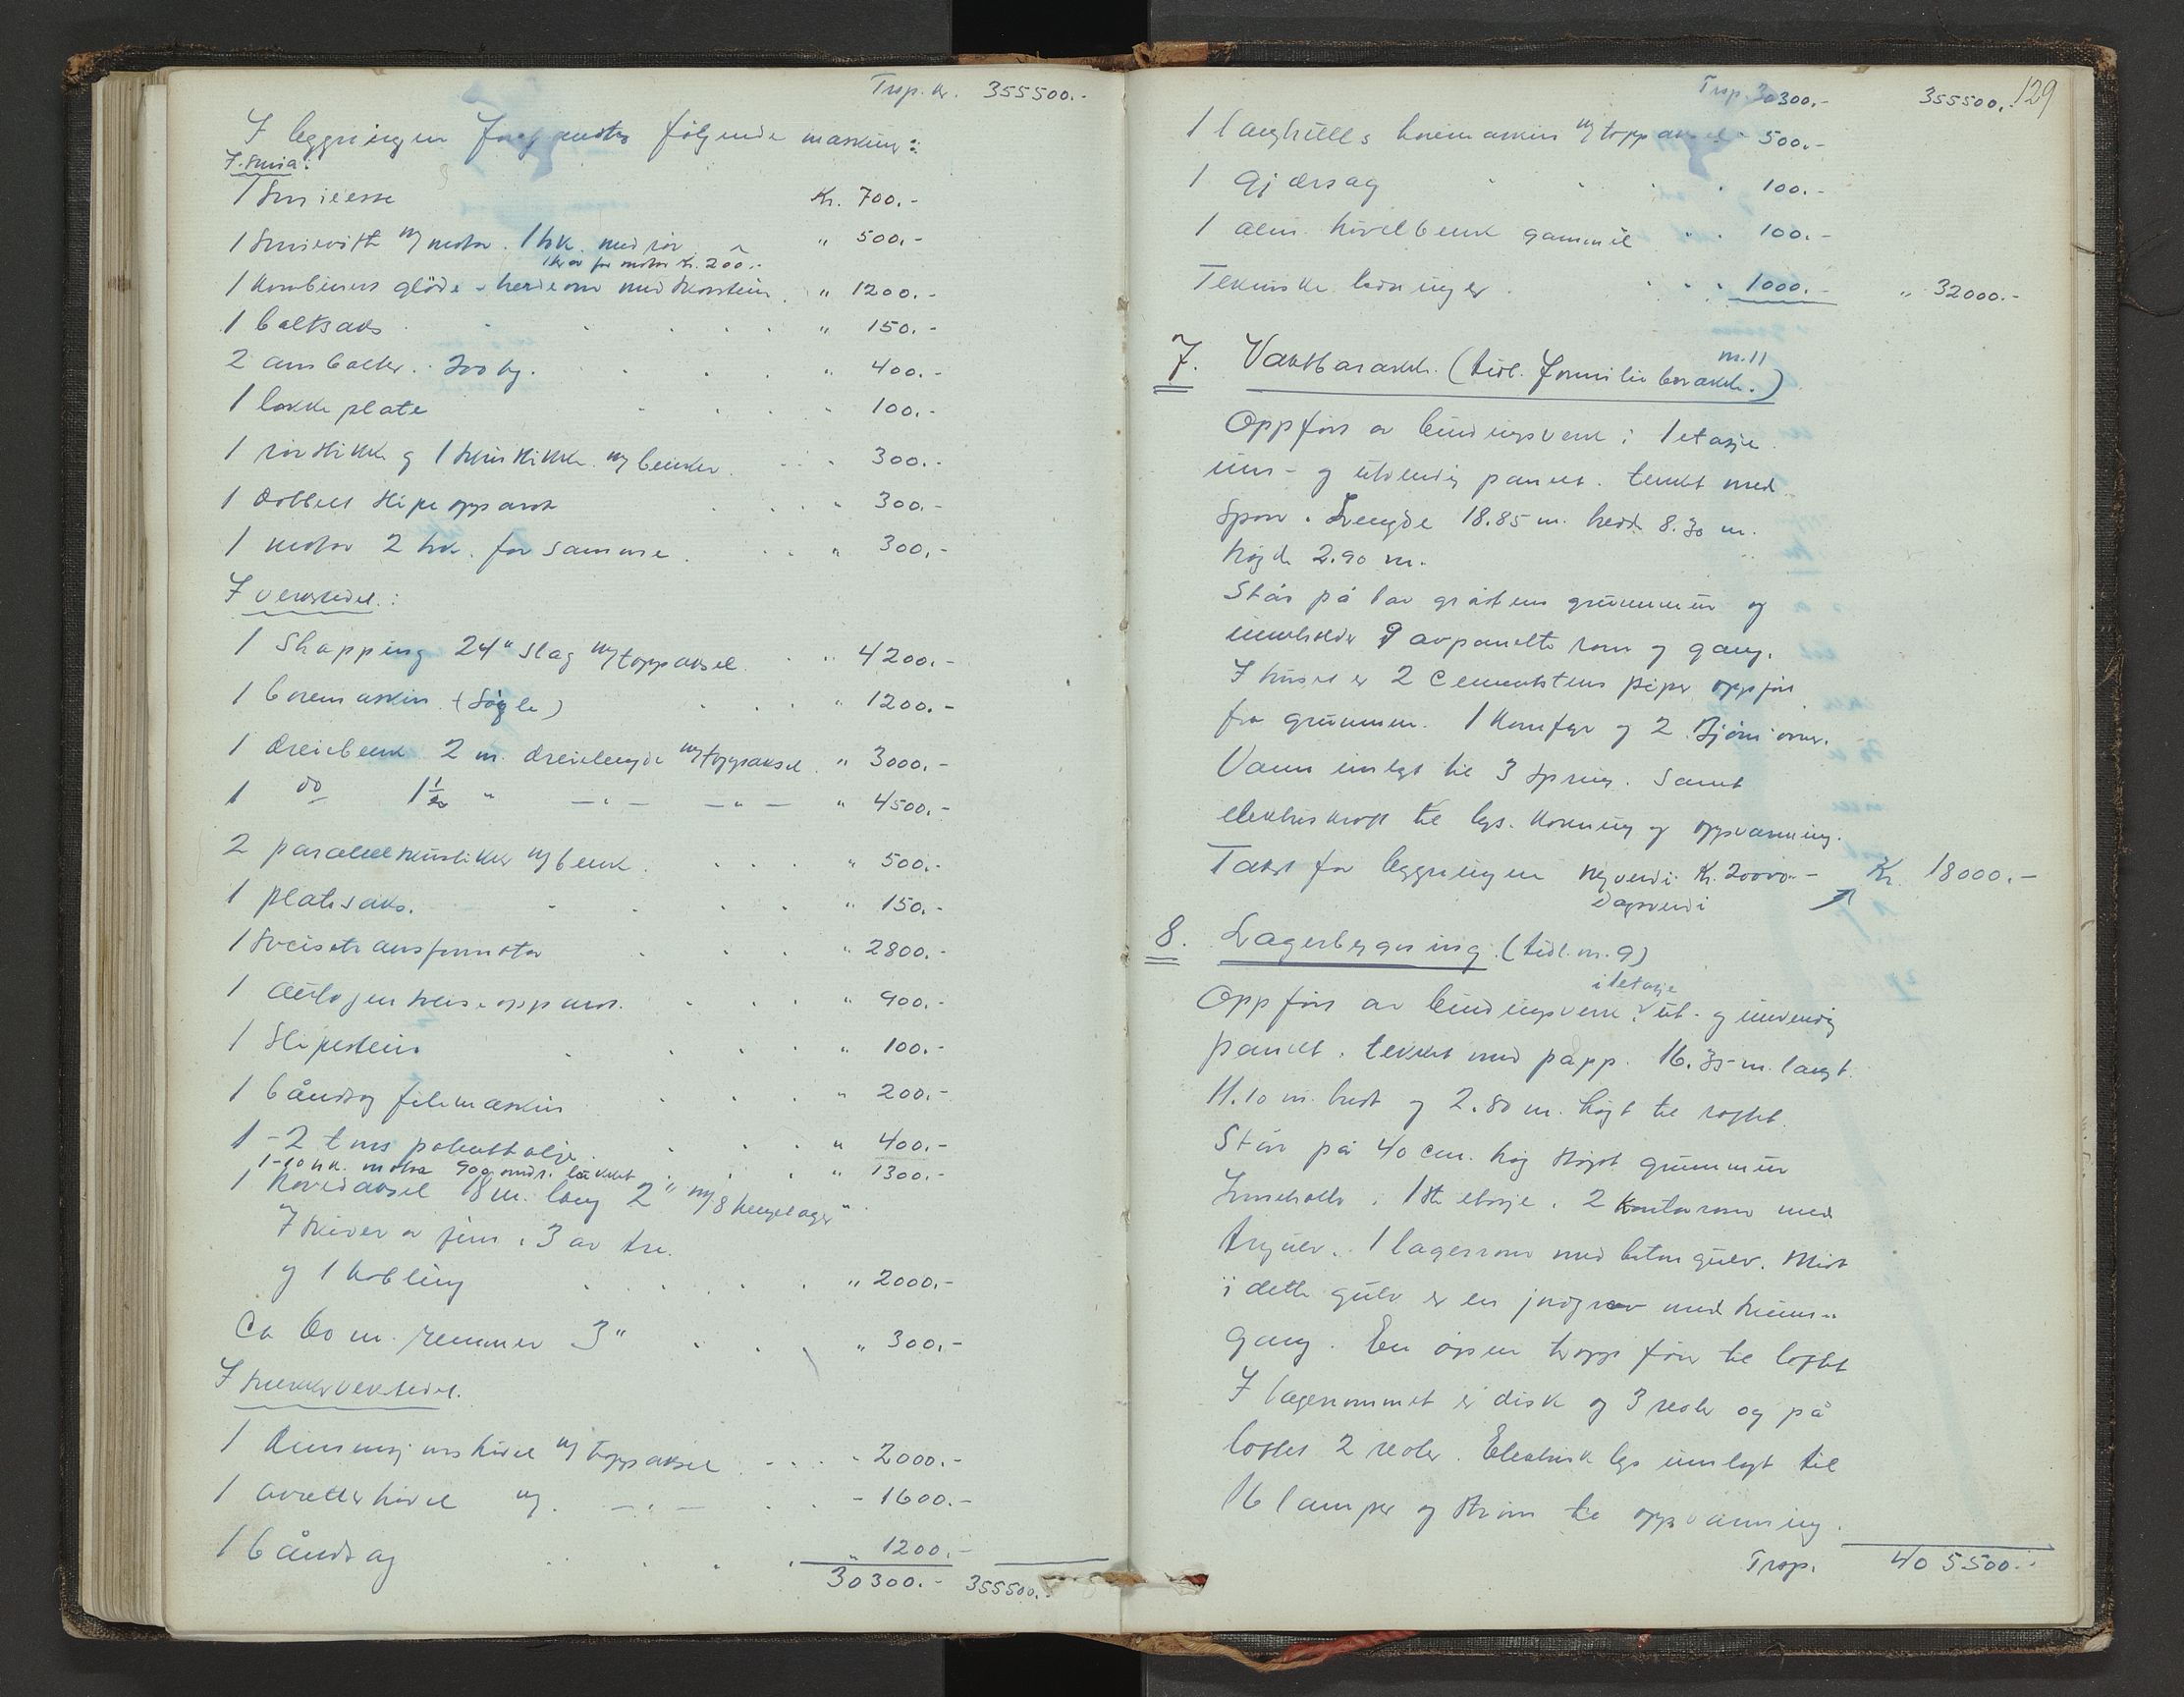 Trsp. kr. 355500.-
I byggningen følgende maskiner:
I smia:
1 Smieesse Kr. 700.-
1 Smievifte m/motor 1 hk. med rør " 500.-
for motor kr. 200.-
1 Kombinert gløde- herdeovn med skorstein " 1200.-
1 boltsaks " 150.-
2 ambolter. 200 kg. " 400.-
1 lokkeplate " 100.-
1 rørstikke og 1 skrustikke m/benker 300.-
1 dobbelt slipeapparat " 300.-
1 motor 2 hk. for samme " 300.-
I verkstedet:
1 Shapping 24" slag m/toppaksel " 4200.-
1 boremaskin (Søyle) " 1200.-
1 dreiebenk 2 m. dreielengde m/toppaksel " 3000.-
1 do 1½ " — " — — " — " 4500.-
2 parallellskrustikker m/benk " 500.-
1 platesaks. " 150.-
1 Sveisetransformator " 2800.-
1 autogen sveiseapparat " 900.-
1 Slipestein " 100.-
1 båndsag filemaskin " 200.-
1 - 2 tons patenttalje " 400.-
1-10 hk. motor 900 omdr. lukket " 1300.-
1 hovedaksel 18 m. lang 2" m/8 hengelager "
7 skiver av jern, 3 av tre.
og 1 kobling " 2000.-
Ca 60 m. remmer 3" " 300.-
I snekkerverkstedet.
1 dimensjonshøvel m/toppaksel " 2000.-
1 avretterhøvel m/ — " — - 1600.-
1 båndsag " 1200.-
30300.- 355500.-
Trsp. 30300.- 355500.- 129
1 langhulls boremaskin m/toppaksel " 500.-
1 Gjærsag 100.-
1 alm. høvelbenk gammel 100.-
Tekniske ledninger 1000.- " 32000.-
7. Vaktbarakke. (tidl. familiebarakke nr. 11)
Oppført av bindingsverk i 1 etasje.
inn- og utvendig panelt. tekket med
Spon. Lengde 18.85 m. bredde 8.30 m.
høyde 2.90 m.
Står på lav gråstens grunnmur og
inneholder 9 avpanelte rom og gang.
I huset er 2 Cementstens piper oppført
fra grunnen. 1 Komfyr og 2
Vann innlagt til 3 spring. samt
elektriskkraft til lys. kokning og oppvarming.
Takst for byggningen nyverdi Kr. 20000.- Kr. 18000.-
dagsverdi
8. Lagerbygning (tidl. nr. 9)
i 1 etasje
Oppført av bindingsverk ut- og innvendig
panelt. tekket med papp. 16.35 m. langt.
11.10 m. bredt og 2.80 m. høgt til loftet.
Står på 40 cm. høg støpt grunnmur
Inneholder i 1ste etasje. 2 Kontorrom med
tregulv. 1 lagerrom med betongulv. Midt
i dette gulv er en med
gang. En åpen trapp fører til loftet
I lagerrommet er disk og 3 reoler og på
loftet 2 reoler. Elektrisk lys innlagt til
16 lamper og strøm til oppvarming.
Trsp. 405500.-